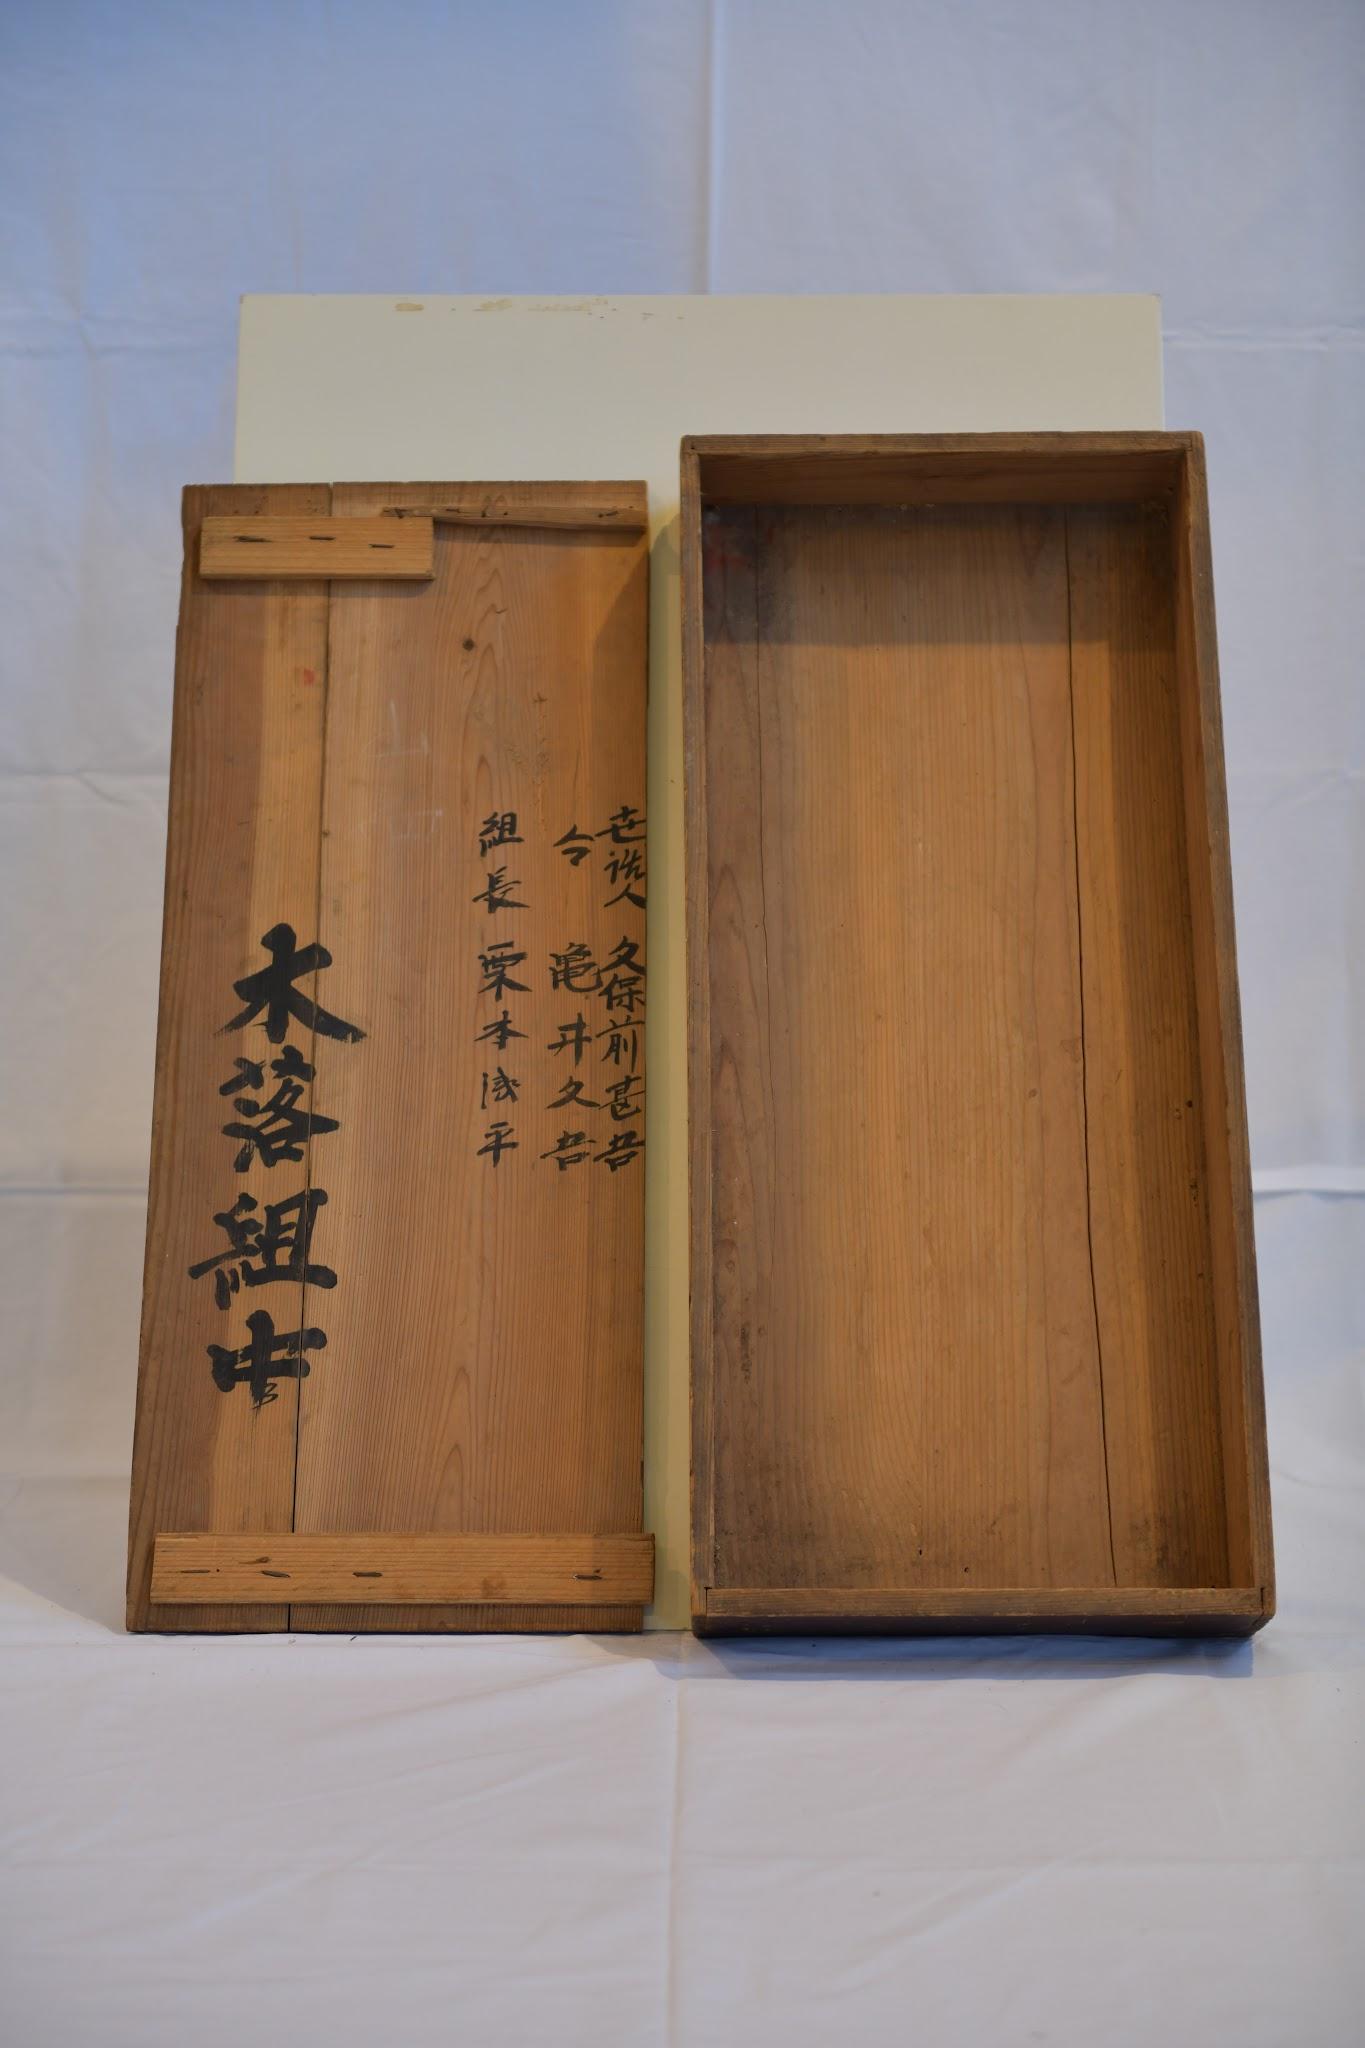 世話人 久保前甚吾
仝 亀井久吾
組長 栗本浅平
木落組中